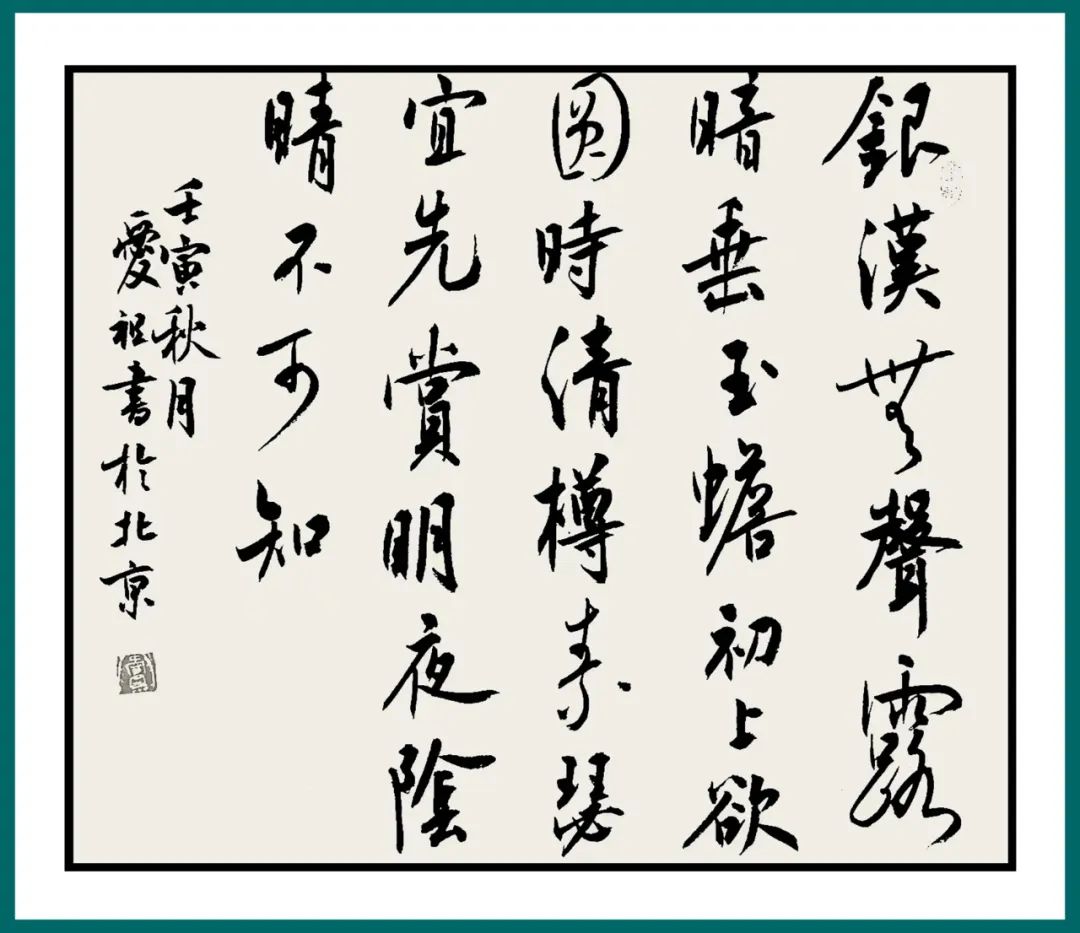 銀漢無聲露
暗垂玉蟾初上欲
圓時清樽素瑟
宜先賞明夜陰
晴不可知
壬寅秋月
愛祖書於北京